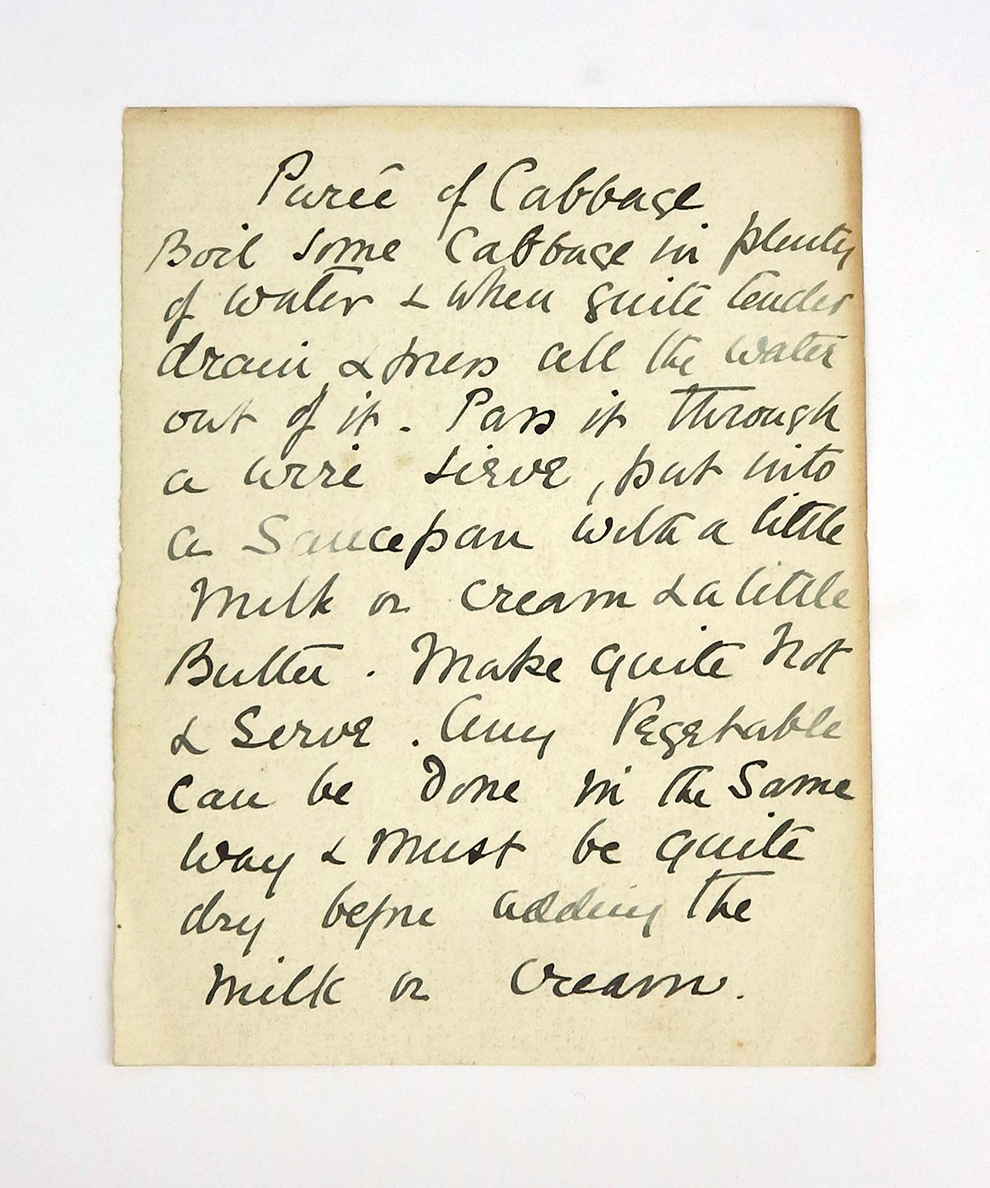 Pureé of Cabbage
Boil Some Cabbage in plenty
of water & when quite tender
drain & press all the water
out of it. Pass it through
a wire sieve, put into
a Saucepan with a little
Milk or Cream & a little
Butter. Make quite Hot
& Serve. Any Vegetable
Can be Done in the Same
way & Must be quite
dry before adding the
Milk or Cream.